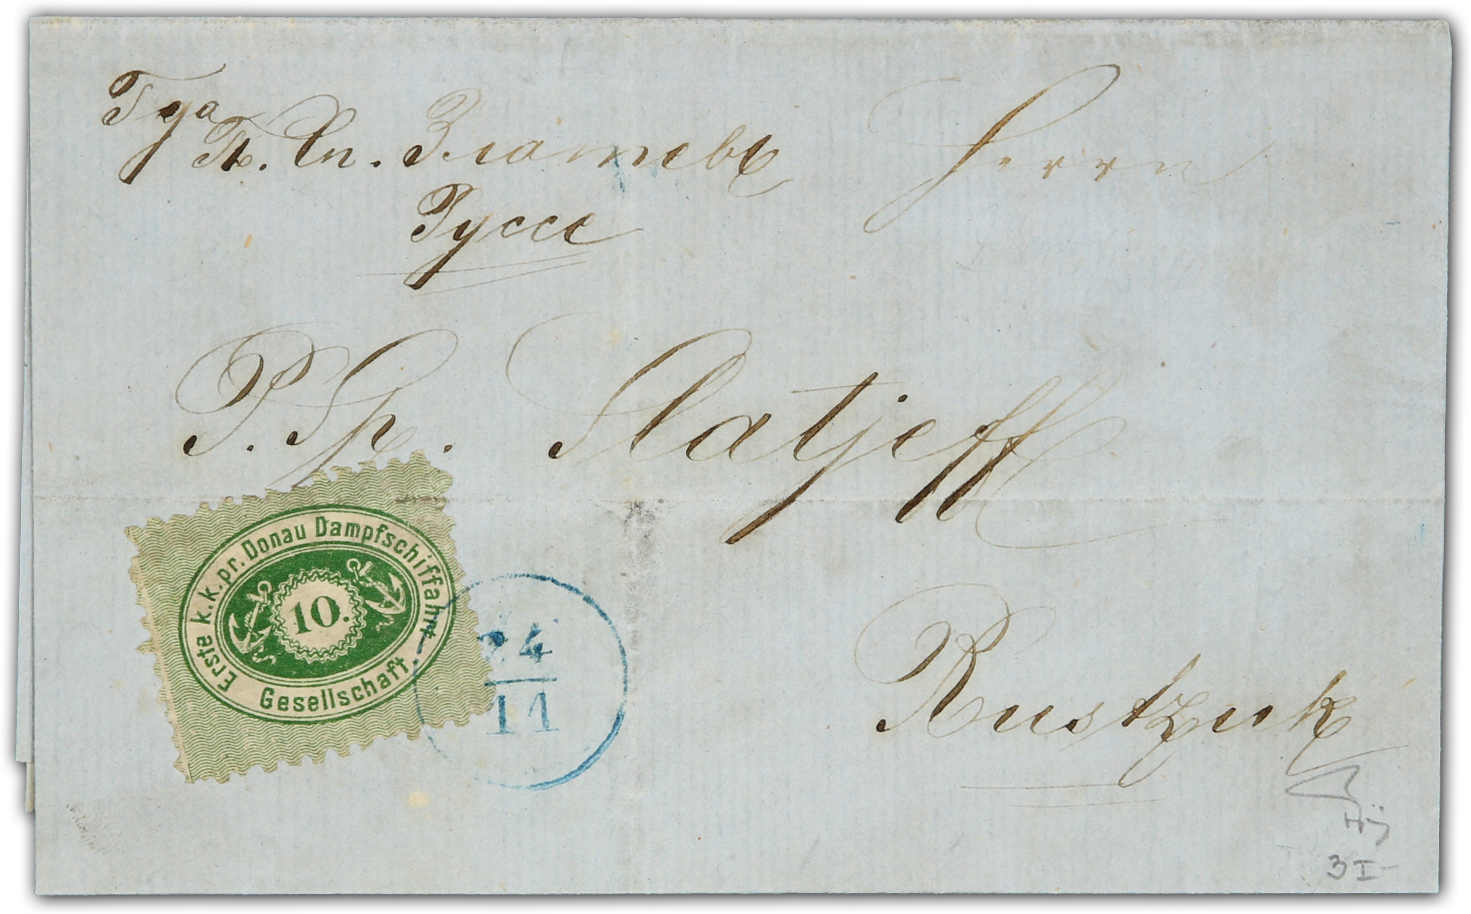 Гда
П. Сп. Златевъ
Руссе
Herrn
P. Sp. Slatjeff
Erste k.k.pr. Donau Dampfschiffahrt-
Gesellschaft
10.
24
11
Rustzuk
3 I-